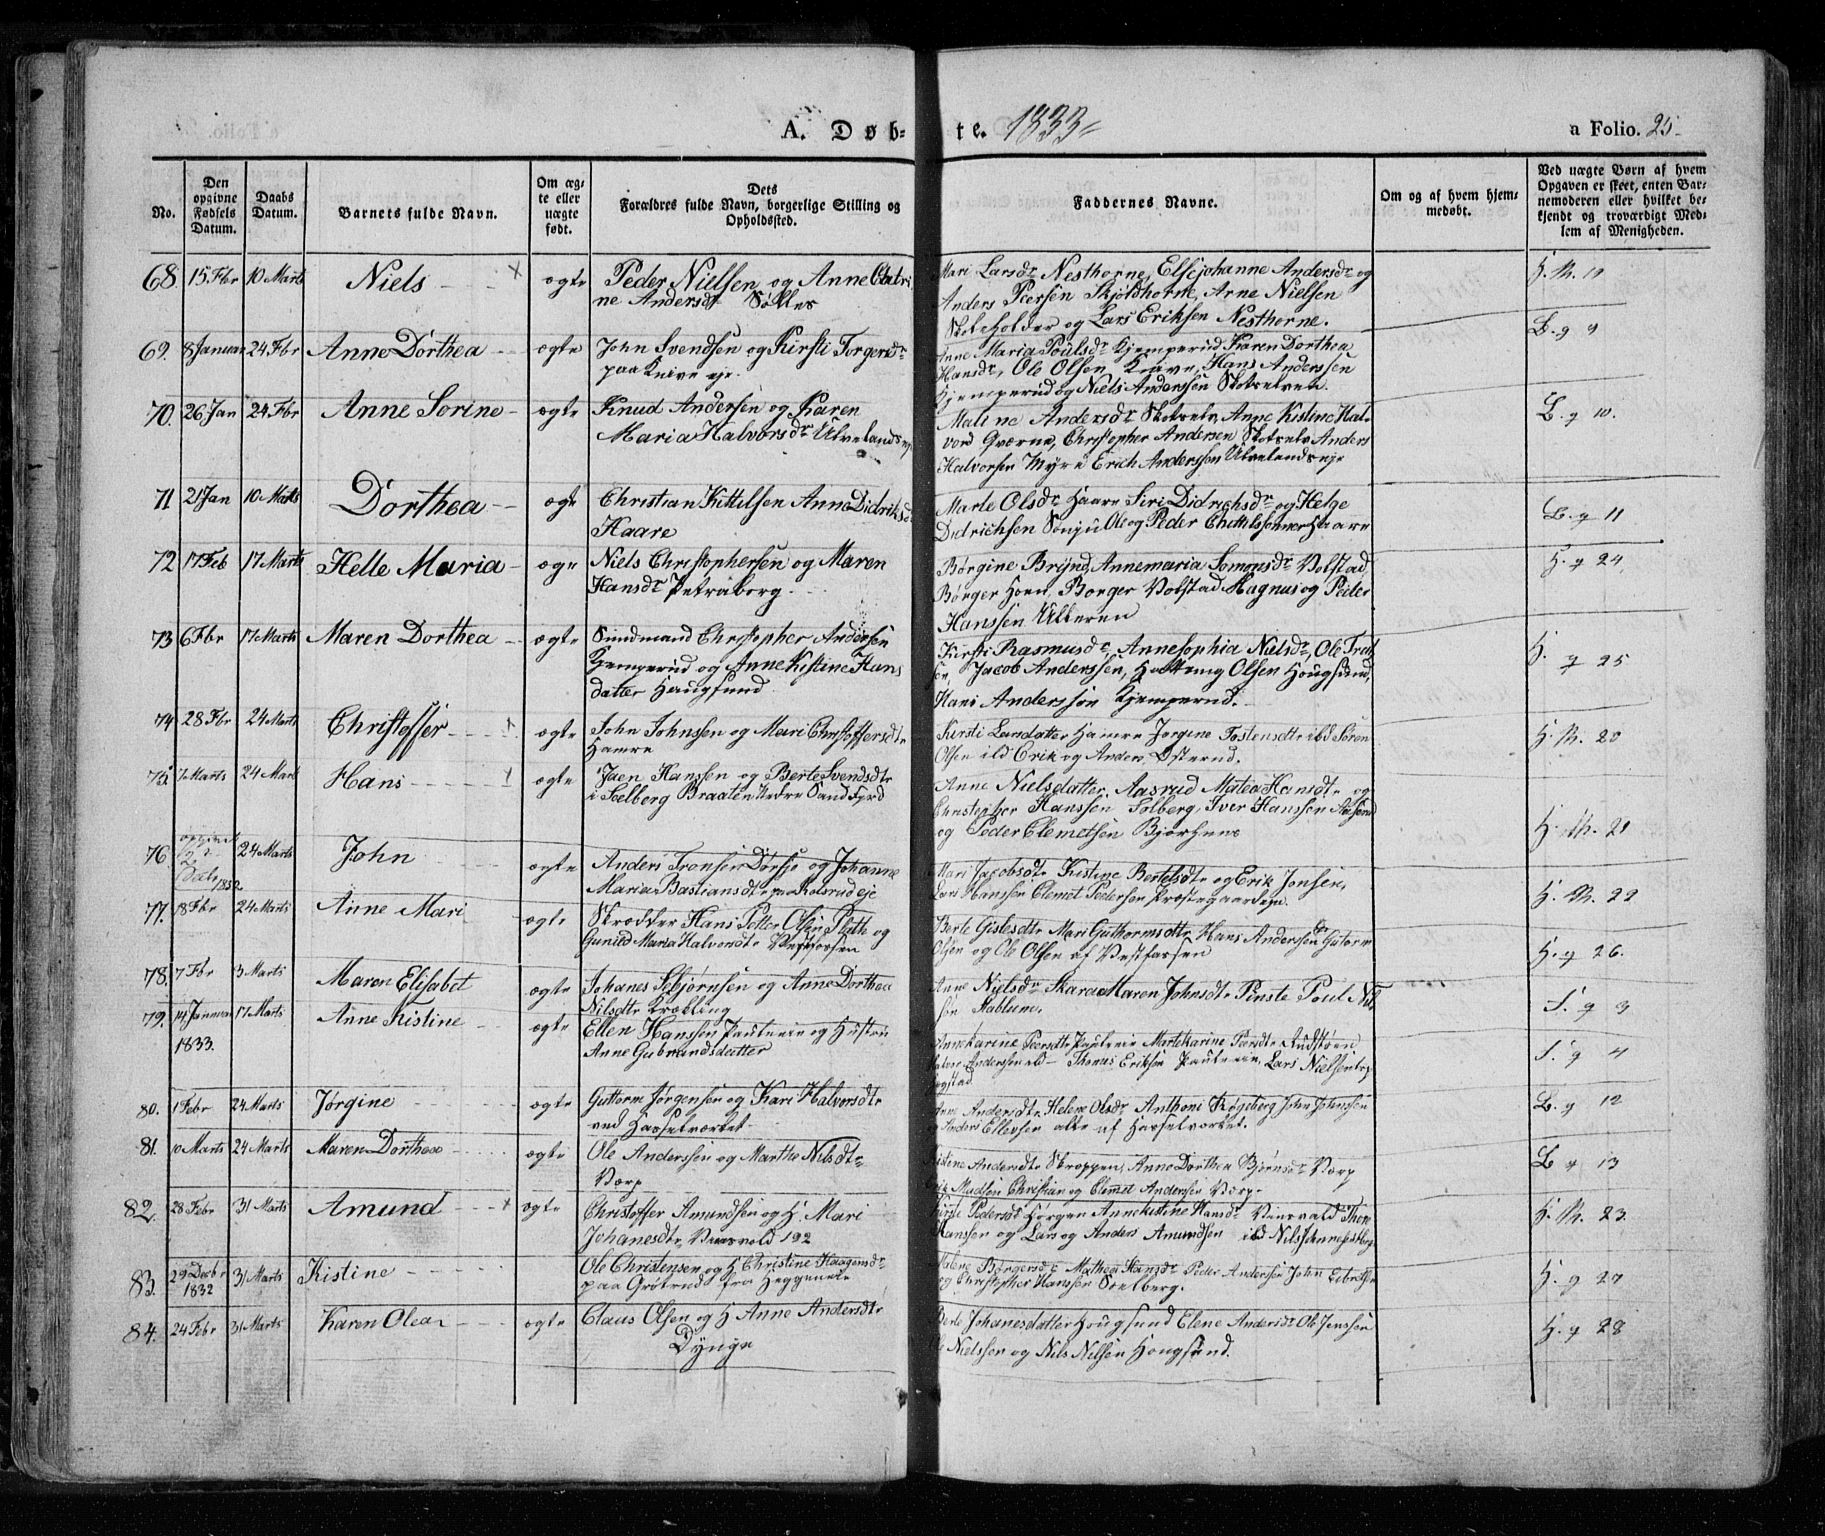 A. Døb- te. 1833
a Folio. 25
No.
Den opgivne Fødsels Datum.
Daabs Datum.
Barnets fulde Navn.
Om ægte eller uægte født.
Dets Forældres fulde Navn, borgerlige Stilling og Opholdssted.
Faddernes Navne.
Om og af hvem hjemmedøbt.
Ved uægte Børn af hvem Opgaven er skeet, enten Barnemoderen eller hvilket bekjendt og troværdigt Medlem af Menigheden.
68 15 Fbr 10 Marts Niels × ægte Peder Nielsen og Anne Catri
ne Andersdr Sølles
Mari Larsdr Nesthorne, Elsejohanne Andersdr og
Anders Peersen Skjoldhorne, Arne Nielsen
Skoleholder og Lars Eriksen Nesthorne.
69. 8 Januar 24 Fbr Anne Dorthea ægte John Svendsen og Kirsti Torgersdr
paa Knive eje
Anne Maria Poulsdr Kjemperud Karen Dorthea
Hansdr, Ole Olsen Knive, Hans Anderssen
Kjemperud og Niels Anderssen Skotselven
L. g 9
70. 26 Jan 24 Fbr Anne Sorine ægte Knud Andersen og Karen
Maria Halvorsdr Ulvelands eje
Maline Andersdr Skotselv, Anne Kistine Hal-
vord Qværne, Christopher Andersen Skotselv Anders
Halvorsen Myre Erich Anderssen Ulvelandseje
L. g 10.
71 21 Jan 10 Marts Dorthea ægte Christian Kittilsen Anne Didriksdr
Haare
Marte Olsdr Haare Siri Didrichsdr og Helge
Didrichsen Ole og Peder Haare
L. g 11
72 17 Feb 17 Marts Helle Maria ægte Niels Christophersen og Maren
Hansdr Petraborg
Børgine Brynd, Annemaria Simonsdr Volstad
Børger Horn, Borger Volstad Magnus og Peder
Hanssen Ulleren
H. g 24
73 6 Fbr 17 Marts Maren Dorthea ægte Sundmand Christopher Andersen
Kjemperud og Anne Kistine Hans
datter Haugsund
Kirsti Rasmusdr, Annesophia Nielsdr, Ole
sen, Jacob Anderssen, Olsen Hougsund,
Hans Anderssøn Kjemperud.
H. g 25
74 28 Fbr 24 Marts Christoffer ægte John Johnssen og Mari Christoffersdtr
Hamre
Kirsti Larsdatter Hamre Jorgine Tostensdtr ibd Søren
Olsen ibd Erik og Anders Østerud.
H. M. 20
75 7 Marts 24 Marts Hans ægte Jaen Hanssen og Berte Svendsdtr
i Soelberg Braaten Nedre Sandsfyrd
Anne Nielsdatter Aasrud Matea Hansdtr og
Christopher Hanssen Solberg, Iver Hanssen
og Peder Clemetsen Bjørhuus
H. M. 21
76 24 Marts John ægte Anders Dørsjø og Johanne
Maria Bastiansdtr paa eje
1832
Mari Jacobsdtr Kistine Bertelsdtr og Erik Jonsen,
Lars Hanssen Clemet Pedersen Præstegaardseje.
H. M. 22
77. 18 Fbr 24 Marts Anne Mari ægte Skrædder Hans Petter Olsen Pleth og
Gunild Maria Halvorsdtr Vestfossen
Berte Gislesdtr Mari Guthormsdtr Hans Andersen Gutorm
Olsen og Ole Olsen af Vestfossen
H. g 26.
78. 7 Fbr 3 Marts Maren Elisabet ægte Johanes Sebjørnsen og Anne Dorthea
Nilsdtr Krækling
Anne Nielsdr Skara Maren Johnsdtr Pinste Poul Nil
søn Hablum.
S. g 3
79. 14 Januar 17 Marts Anne Kistine ægte Ellen Hanssen og Hustru
1833.
Anne Gubrandsdatter
Annekarine Peersdtr Martekarine Peersdtr
Andersen ibd — Thomas Eriksen Lars Nielsen
S. g 4
80. 1 Febr 24 Marts Jørgine ægte Guttorm Jørgensen og Kari Halvorsdtr
ved Hasselværket
Anne Andersdtr Helene Olsdr Anthoni Køgeberg John Johnssen
Anders Ellevsen alle af Hasselværket.
L. g 12
81. 10 Marts 24 Marts Maren Dorthea ægte Ole Anderssen og Marthe Nilsdtr
Værp
Kistine Andersdtr Skroppen, Anne Dorthea Bjørnsdr Værp
Erik Madsen Christian og Clemet Andersen Værp.
L g 13
82. 28 Febr 31 Marts Amund × ægte Christoffer Amundsen og H. Mari
Johanesdtr, 192
Kirsti Pedersdt Horgen Annekistine Hansdr
Hanssen og Lars og Anders Amundsen
H. M. 23.
83. 29 Decbr 1832 31 Marts Kistine Ole Christensen og H Christine Haagensdr
paa fra Heggen
Malene Børgersdtr Mathea Hansdr Peder Andersen John
og Christopher Hanssen Soelberg.
H. g 27
84. 24 Febr 31 Marts Karen Olea ægte Claus Olsen og H Anne Andersdtr
Dynge
Berte Johanesdatter Hougsund Elene Andersdt Ole Jenssen
Ole Nielssen og Nils Nilsen Hougsund.
H. g 28